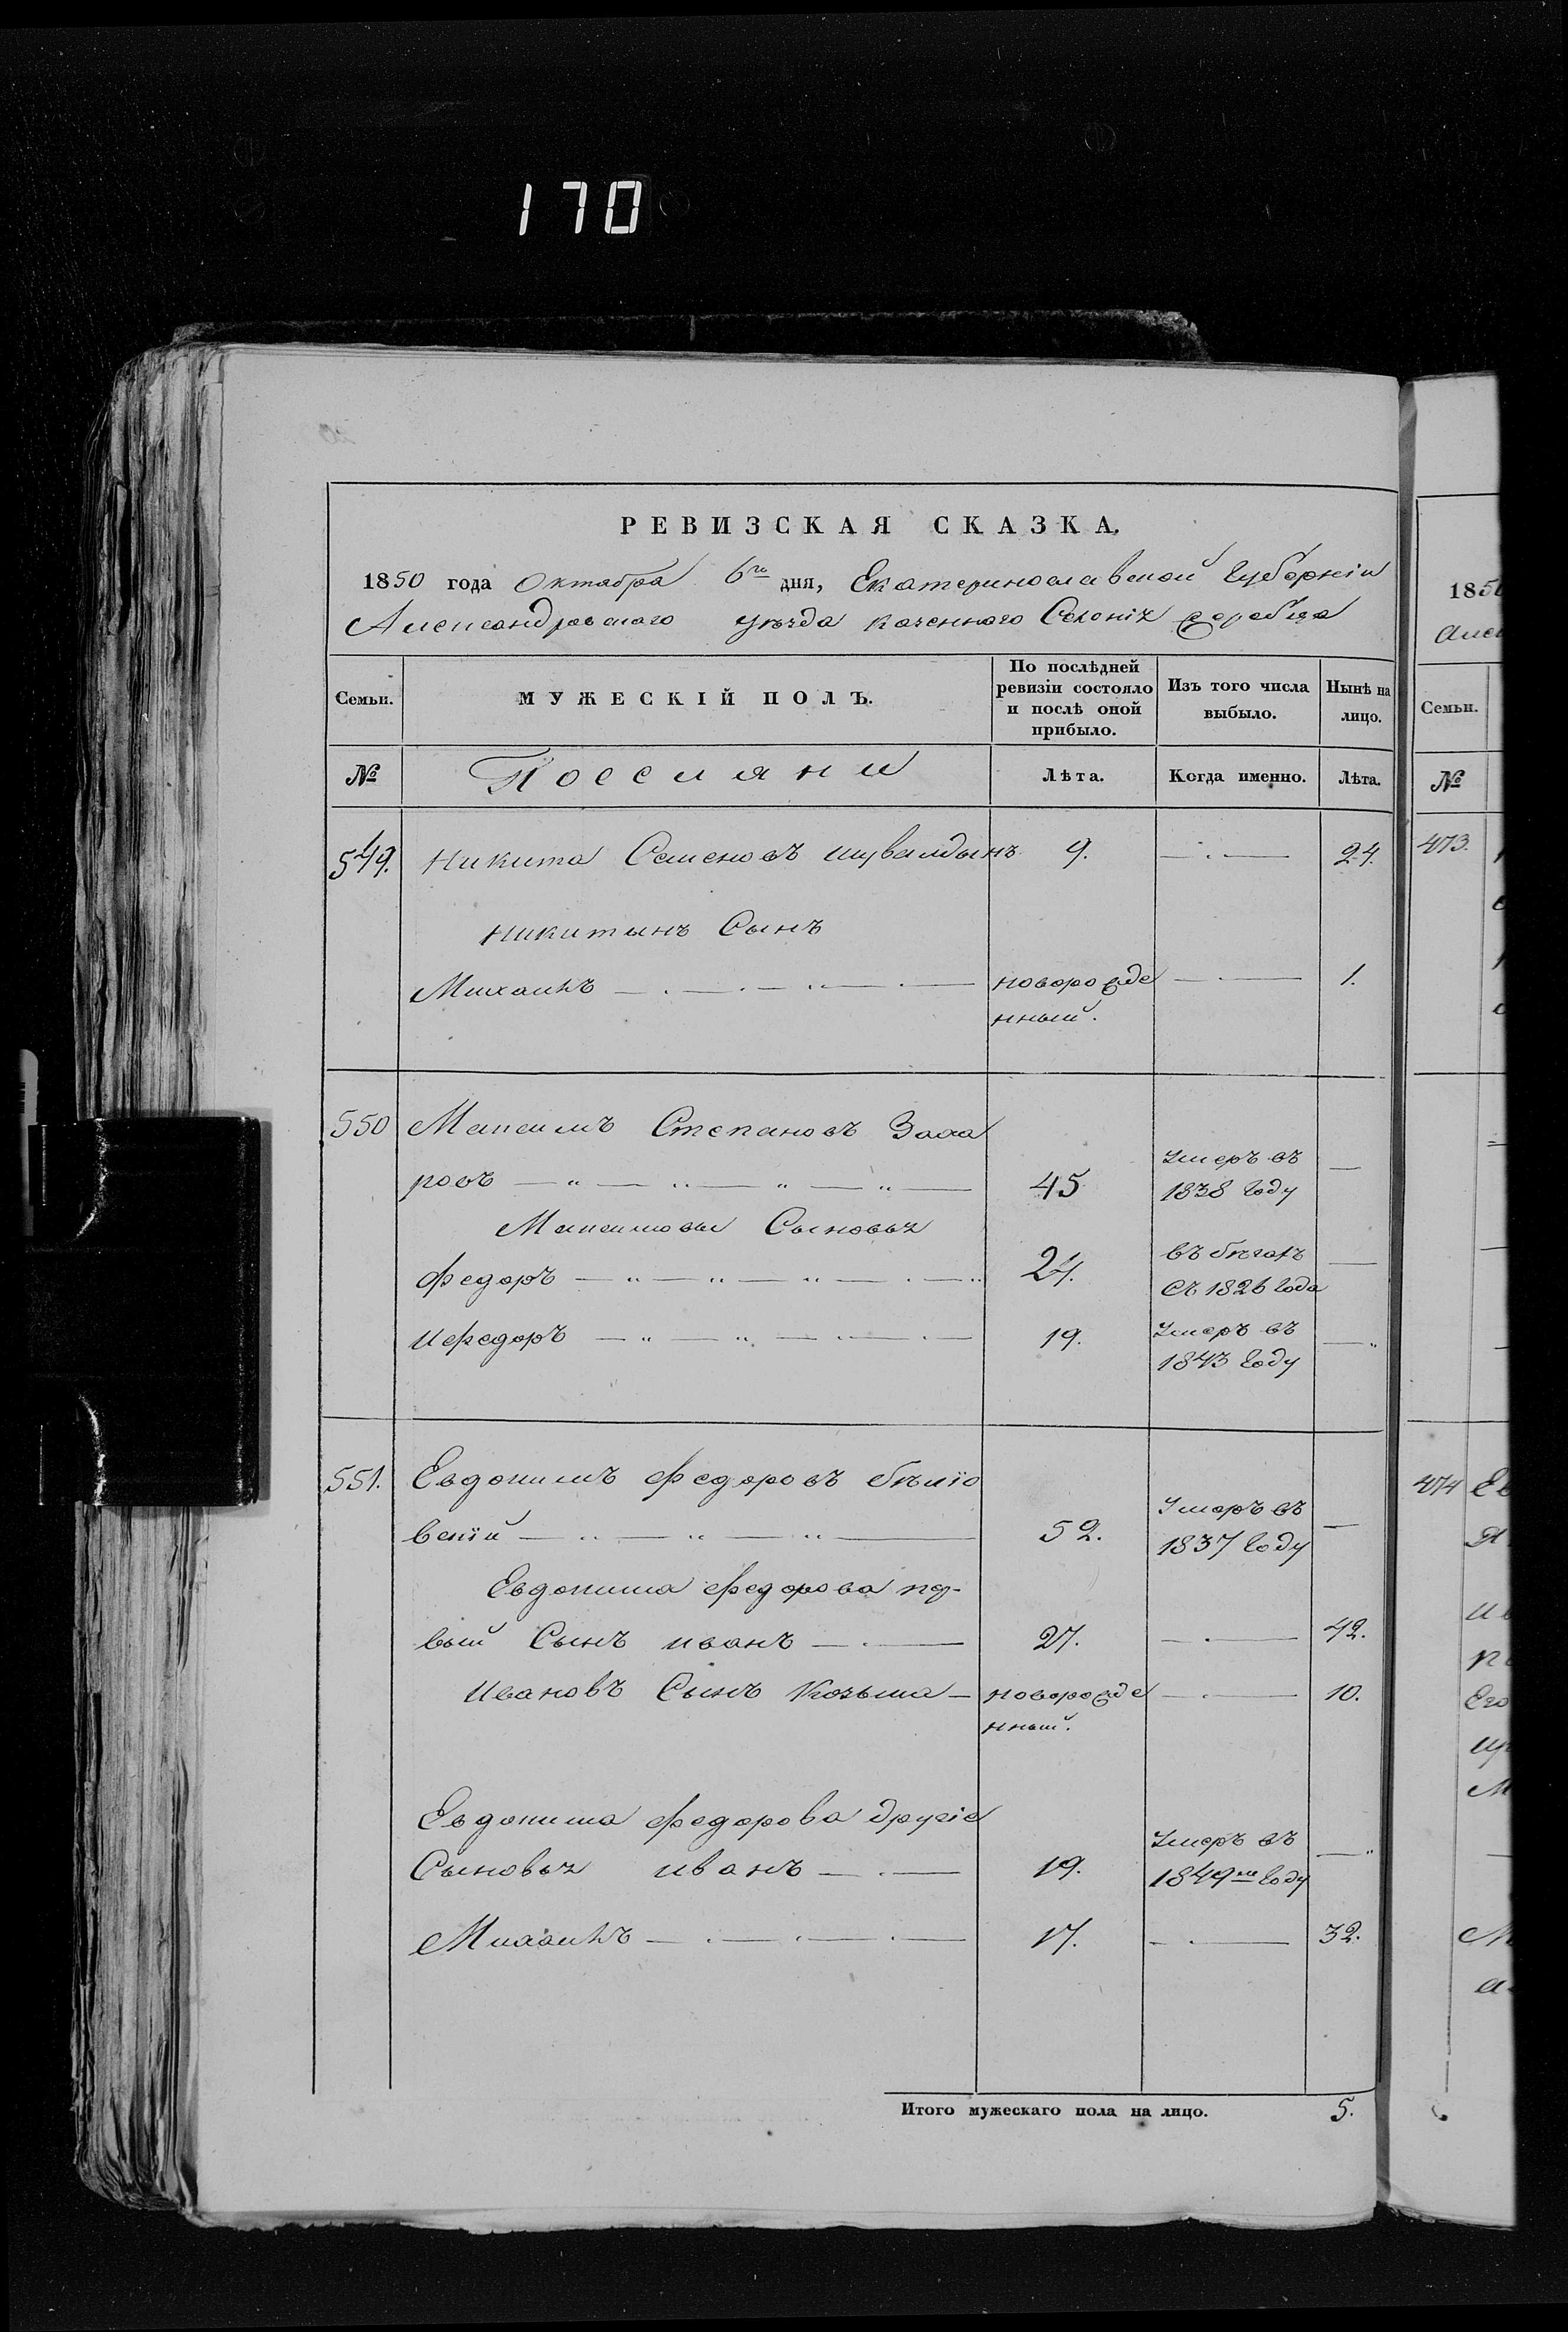 170
РЕВИЗСКАЯ СКАЗКА.
1850 года Октября 6го дня, Екатеринославской Губерніи
Александровскаго уѣзда казеннаго Селенія Жеребца
Семьи. МУЖЕСКІЙ ПОЛЪ. По послѣдней ревизіи состояло и послѣ оной прибыло. Изъ того числа выбыло. Нынѣ на лицо.
№ Поселяни Лѣта. Когда именно. Лѣта.
549. Никита Семеновъ Шувалдинъ 9. — 24.
Никитынъ Сынъ
Михаилъ — новорожде — 1.
нный.
550 Максимъ Степановъ Заха
ровъ — 45 Умеръ въ 1838 году —
Максимовы Сыновья
Федоръ — 24. въ бѣгахъ съ 1826 года —
Иефедоръ — 19. Умеръ въ 1843 году —
551. Евдокимъ Федоровъ
вскій — 52. Умеръ въ 1837 году —
Евдокима Федорова пер-
вый Сынъ иванъ — 27. — 42.
Ивановъ Сынъ Козьма — новорожде — 10.
нный.
Евдокима Федорова другіе
Сыновья иванъ — 19. Умеръ въ 1849м году —
Михаилъ — 17. — 32.
Итого мужескаго пола на лицо. 5.
185
Семьи.
№
473.
474 Ев